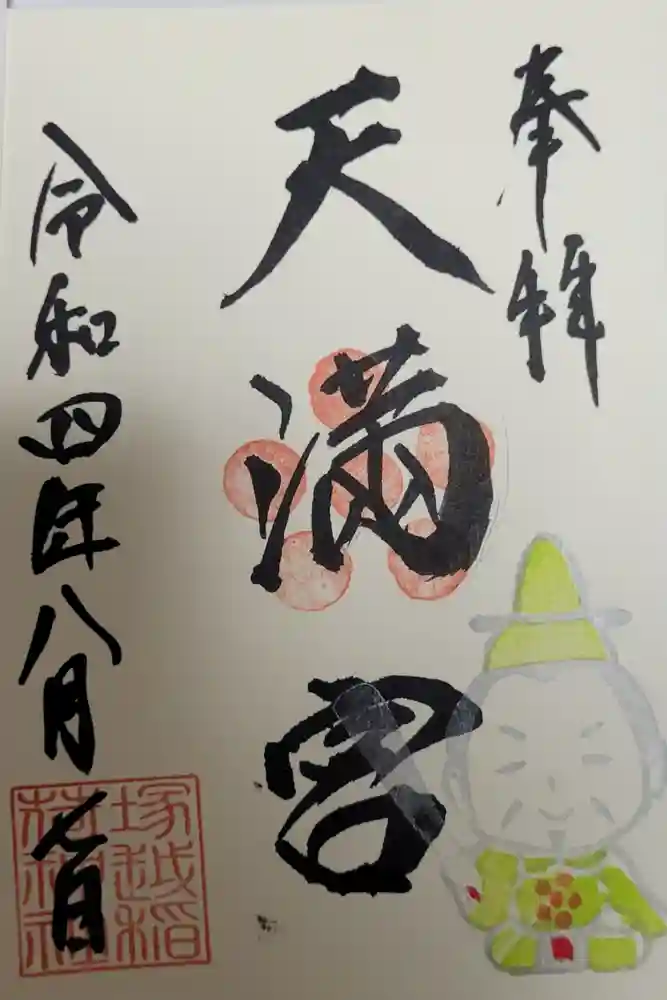 奉拝
天満宮
令和四年八月七日
塚越稲
荷神社